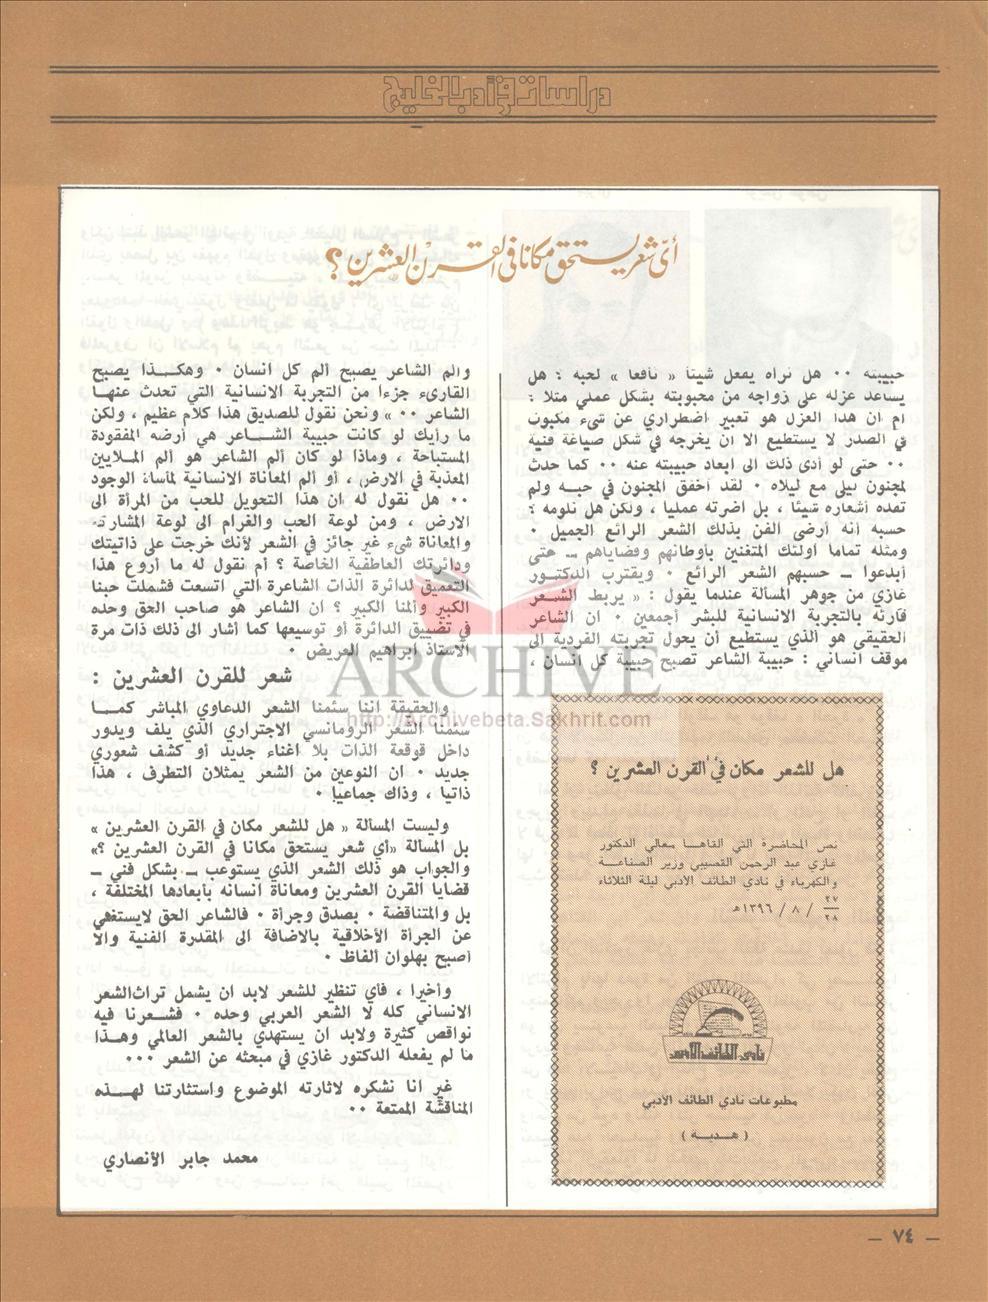 دراسات في أدب الخليج
أي شعر يستحق مكانا في القرن العشرين ؟
حبيبته ٠٠ هل نراه يفعل شيئا « نافعا » لحبه : هل
يساعد غزله على زواجه من محبوبته بشكل عملي مثلا :
أم ان هذا الغزل هو تعبير اضطراري عن شىء مكبوب
في الصدر لا يستطيع الا ان يخرجه في شكل صياغة فنية
٠٠ حتى لو أدى ذلك الى ابعاد حبيبته عنه ٠٠ كما حدث
لمجنون ليلى مع ليلاه ٠ لقد أخفق المجنون في حبـه ولم
تفده أشعاره شيئا ، بل أضرته عمليا ، ولكن هل نلومه :
حسبه أنه أرضى الفن بذلك الشعر الرائع الجميل ٠
ومثله تماما أولئك المتغنين بأوطانهم وقضاياهم ــ حتى
أبدعوا ــ حسبهم الشعر الرائع ٠ ويقترب الدكتـور
غازي من جوهر المسألة عندما يقول : « يربط الشـعر
قارئه بالتجربة الانسانية للبشر أجمعين ٠ ان الشاعر
الحقيقي هو الذي يستطيع أن يحول تجربته الفردية الى
موقف انساني : حبيبة الشاعر تصبح حبيبة كل انسان ،
هل للشعر مكان في القرن العشرين ؟
نص المحاضرة التي القاها معالي الدكتور
غازي عبد الرحمن القصيبي وزير الصناعـة
والكهرباء في نادي الطائف الأدبي ليلة الثلاثاء
٢٧
٢٨ / ٨ / ١٣٩٦هـ
نادي الطائف الأدبي
مطبوعات نادي الطائف الأدبي
( هـديـة )
والم الشاعر يصبح ألم كل انسان ٠ وهكـــذا يصبح
القارىء جزءا من التجربة الانسانية التي تحدث عنهـا
الشاعر ٠٠ » ونحن نقول للصديق هذا كلام عظيم ، ولكن
ما رأيك لو كانت حبيبة الشــاعر هي أرضه المفقودة
المستباحة ، وماذا لو كان ألم الشاعر هو ألم المـلايين
المعذبة في الارض ، أو ألم المعاناة الانسانية لمأساة الوجود
٠٠ هل نقول له ان هذا التحويل للحب من المرأة الى
الارض ، ومن لوعة الحب والغرام الى لوعة المشاركة
والمعاناة شىء غير جائز في الشعر لأنك خرجت على ذاتيتك
ودائرتك العاطفية الخاصة ؟ أم نقول له ما أروع هذا
التعميق لدائرة الذات الشاعرة التي اتسعت فشملت حبنا
الكبير وألمنا الكبير ؟ ان الشاعر هو صاحب الحق وحده
في تضييق الدائرة أو توسيعها كما أشار الى ذلك ذات مرة
الاستاذ ابراهيم العريض ٠
شعر للقرن العشرين :
والحقيقة اننا سئمنا الشعر الدعاوي المباشر كمـــا
سئمنا الشعر الرومانسي الاجتراري الذي يلف ويدور
داخل قوقعة الذات بلا اغناء جديد أو كشف شعوري
جديد ٠ ان النوعين من الشعر يمثلان التطرف ، هذا
ذاتيا ، وذاك جماعيا ٠
وليست المسألة « هل للشعر مكان في القرن العشرين »
بل المسألة «أي شعر يستحق مكانا في القرن العشرين ؟»
والجواب هو ذلك الشعر الذي يستوعب ــ بشكل فني ــ
قضايا القرن العشرين ومعاناة انسانه بأبعادها المختلفة ،
بل والمتناقضة ٠ بصدق وجرأة ٠ فالشاعر الحق لايستغني
عن الجرأة الأخلاقية بالاضافة الى المقدرة الفنية والا
أصبح بهلوان ألفاظ ٠
وأخيرا ، فأي تنظير للشعر لابد ان يشمل تراث الشعر
الانساني كله لا الشعر العربي وحده ٠ فشـعرنا فيه
نواقص كثيرة ولابد ان يستهدي بالشعر العالمي وهـذا
ما لم يفعله الدكتور غازي في مبحثه عن الشعر ٠٠٠
غير انا نشكره لاثارته الموضوع واستثارتنا لهـــذه
المناقشة الممتعة ٠٠
محمد جابر الأنصاري
ARCHIVE
http://Archivebeta.Sakhrit.com
– ٧٤ –